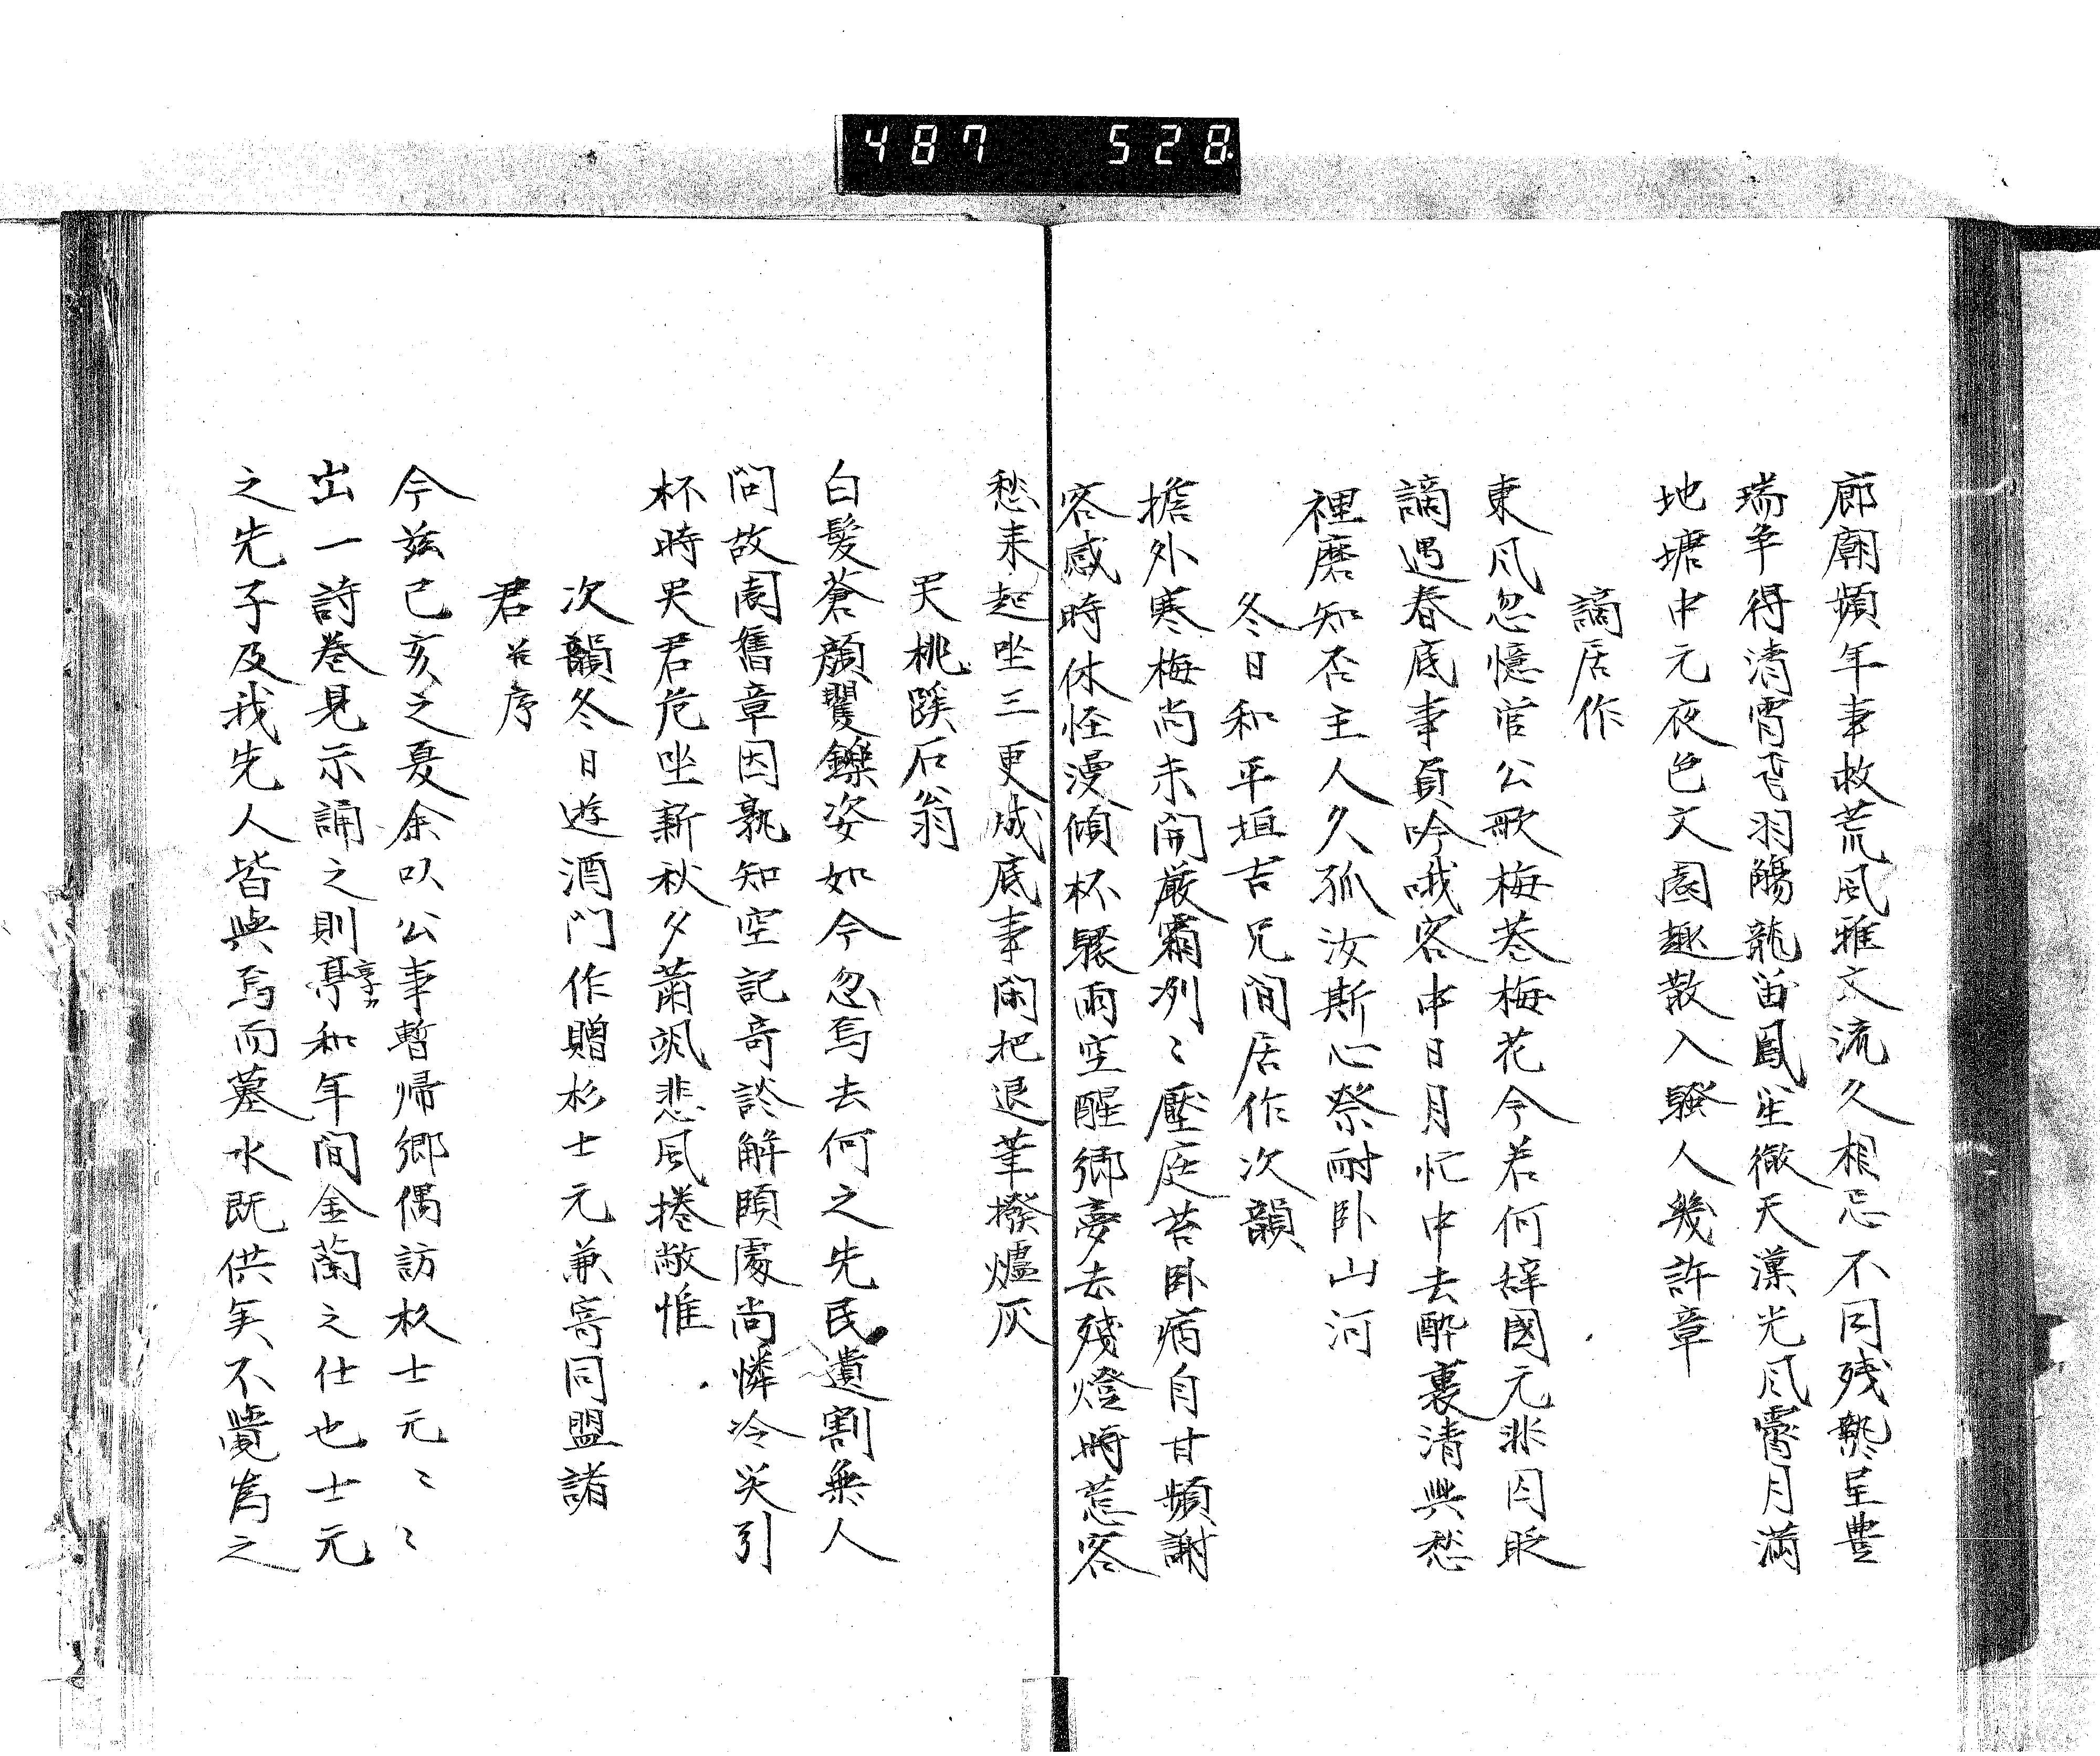 487 528
廊廟頻年事救荒風雅文流久相忘不同残熱呈豊
瑞争得清宵飛羽觴龍笛鳳笙徹天漢光風霽月満
地塘中元夜色文園趣散入騒人幾許章
謫居作
東风忽憶官公歌梅荅梅花今若何辞國元非同貶
謫遇春底事負吟哦客中日月忙中去酔裏清興愁
裡磨知否主人久孤汝斯心祭耐卧山河
冬日和平垣吉兄间居作次韻
擔外寒梅尚未開厳霜冽〻壓庭苔卧病自甘頻謝
客感時休怪漫傾杯驟雨空醒郷夢去残燈時惹客
愁来起坐三更成底事閑把退筆撥爐灰
哭桃蹊石翁
白髪蒼顔矍鑠姿如今忽焉去何之先民遺割無人
問故園舊章因孰知空記奇談解頤處尚憐冷笑引
杯時哭君危坐新秋夕蕭颯悲風捲敞惟
次韻冬日遊酒门作贈杉士元兼寄同盟諸
君並序
今茲己亥之夏余以公事暫帰郷偶訪杉士元〻〻
出一詩巻見示誦之則亭享カ和年间金蘭之仕也士元
之先子及我先人皆與焉而墓水既供矣不覺為之